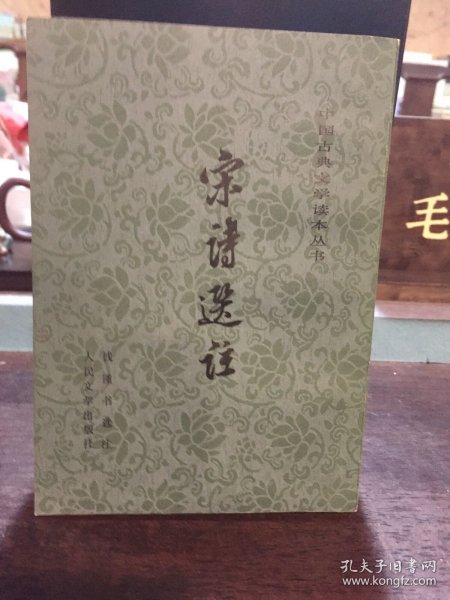 中国古典文学读本丛书
宋诗選註
钱锺书选注
人民文学出版社
毛
孔夫子旧书网
www.kongfz.com